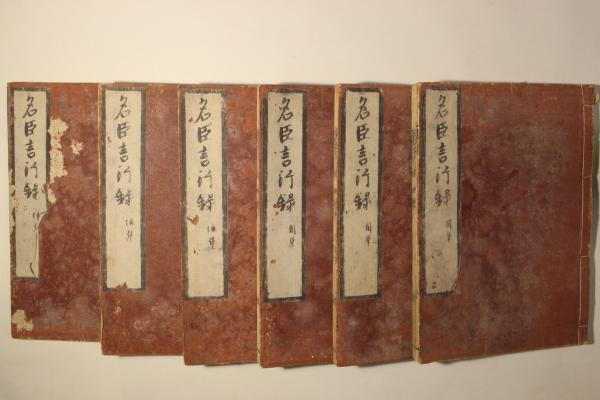 名臣言行録
名臣言行録
名臣言行録
名臣言行録
名臣言行録
名臣言行録